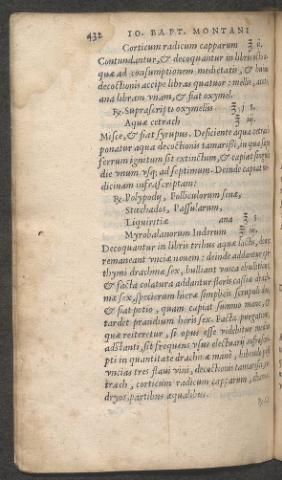 432 IO. BAPT. MONTANI
Corticum radicum capparum ℥ ii.
Contundantur, & decoquantur in libris
quæ ad consumptionem medietatis, & huius
decoctionis accipe libras quatuor: mellis, aceti
ana libram vnam, & fiat oxymel.
℞. Suprascripti oxymelis ℥. j s.
Aquæ cetrach ℥ iii.
Misce, & fiat syrupus. Deficiente aqua cetrach
ponatur aqua decoctionis tamarisci, in qua sæpe
ferrum ignitum sit extinctum, & capiat singulis
die vnum vsq; ad septimum. Deinde capiat
dicinam infrascriptam:
℞. Polypody, Folliculorum senæ,
Stœchados, Passularum,
Liquiritiæ ana ℥ s.
Myrobalanorum Indorum ℥ iii.
Decoquantur in libris tribus aquæ lactis, donec
remaneant vnciæ nouem: deinde addantur epi
thymi drachmæ sex, bulliant vnica ebullitione,
& facta colatura addantur floris cassiæ drach
mæ sex, specierum hieræ simplicis scrupuli duo,
& fiat potio, quam capiat summo mane, &
tardet prandium horis sex. Facta purgatione,
quæ reiteretur, si opus esse videbitur medico
adstanti, sit frequens vsus electuarij infrascri
pti in quantitate drachmæ
vncias tres flaui vini, decoctionis tamarisci,
trach, corticum radicum capparum, chamæ
dryos, partibus æqualibus.